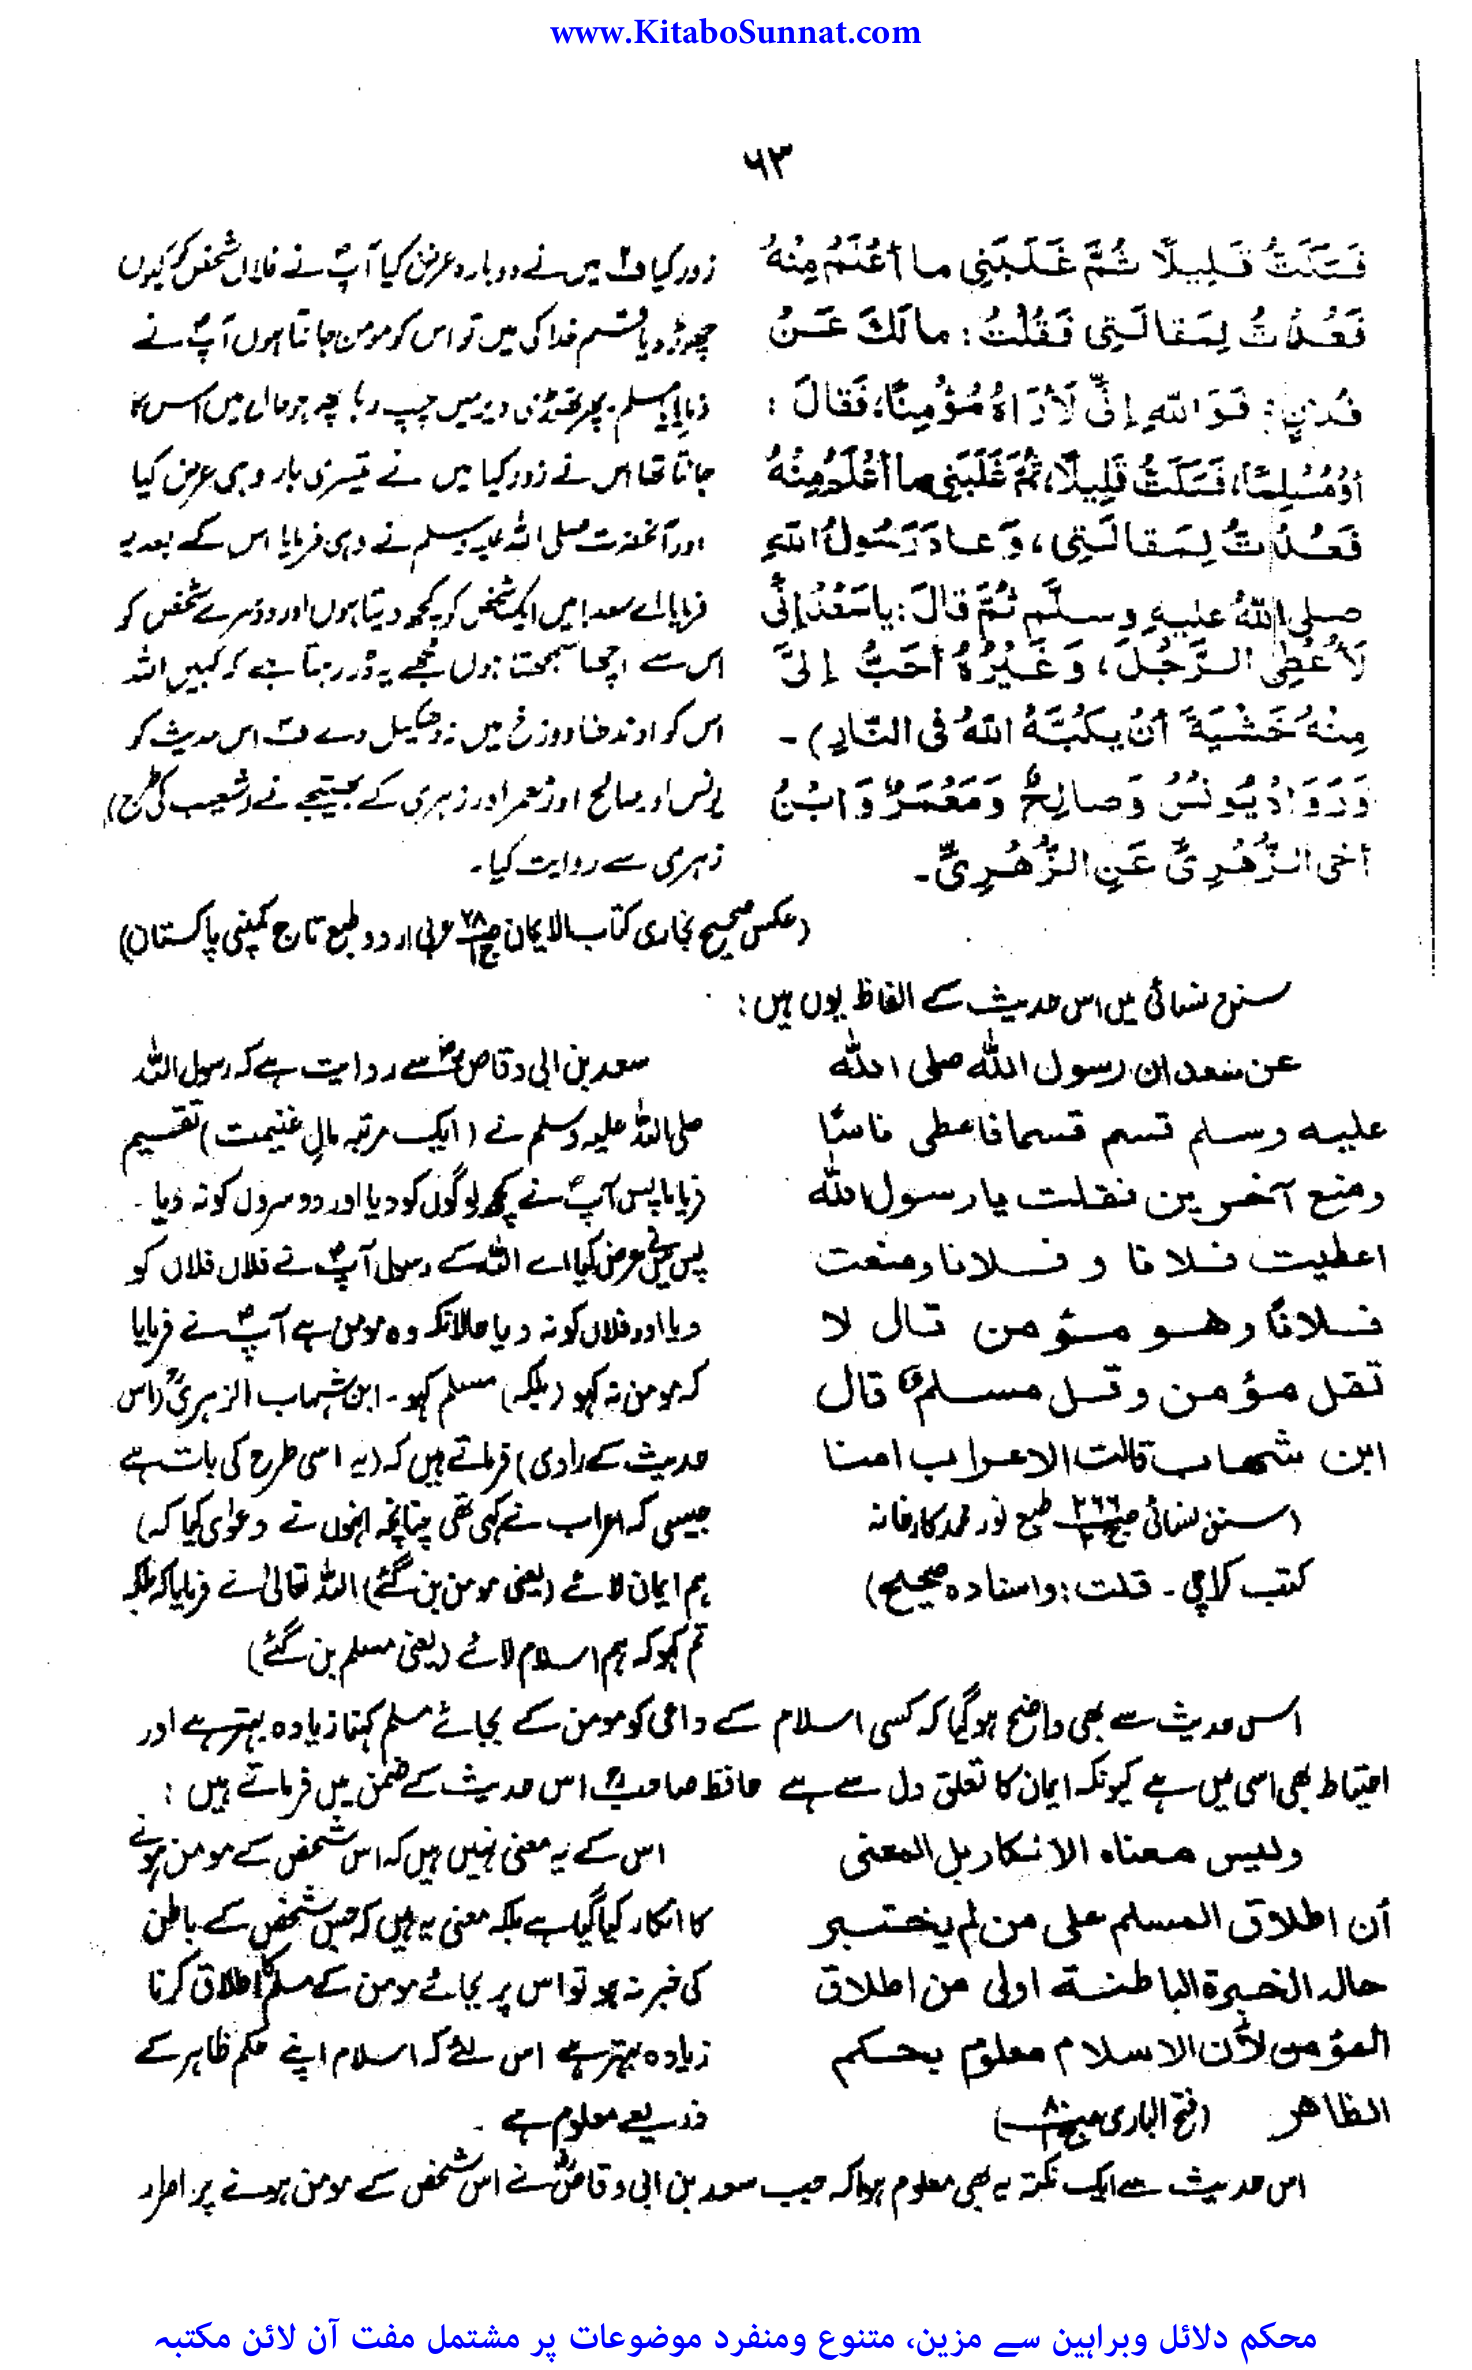 www.KitaboSunnat.com
۶۳
فَسَكَتُّ قَلِيلًا ثُمَّ غَلَبَنِي ما أَعْلَمُ مِنْهُ
فَعُدْتُ لِمَقالَتِي فَقُلْتُ: مالَكَ عَنْ
فُلانٍ؟ فَوَاللهِ إنِّي لَأُرَاهُ مُؤْمِنًا، فَقالَ:
أوْمُسْلِمًا، فَسَكَتُّ قَلِيلًا، ثُمَّ غَلَبَنِي ما أَعْلَمُ مِنْهُ
فَعُدْتُ لِمَقالَتِي، وَعادَ رَسُولُ اللهِ
صلى اللهُ عليهِ وسلَّم ثُمَّ قالَ: يا سَعْدُ إنِّي
لَأُعْطِي الرَّجُلَ، وَغَيْرُهُ أحَبُّ إلىَّ
مِنْهُ خَشْيَةَ أنْ يَكُبَّهُ اللهُ فى النَّارِ)۔
وَرَوَاهُ يُونُسُ وَصالِحٌ وَمَعْمَرٌ وَابْنُ
أخى الزُّهْرِىِّ عَنِ الزُّهْرِىِّ۔
زور کیا ف۱ میں نے دوبارہ عرض کیا آپؐ نے فلاں شخص کو کیوں
چھوڑ دیا قسم خدا کی میں تو اس کو مومن جانتا ہوں آپؐ نے
فرمایا یا مسلم۔ پھر تھوڑی دیر میں چپ رہا پھر جو حال میں اس کا
جانتا تھا اس نے زور کیا میں نے تیسری بار وہی عرض کیا
اور آنحضرت صلی اللہ علیہ وسلم نے وہی فرمایا اس کے بعد یہ
فرمایا اے سعد! میں ایک شخص کو کچھ دیتا ہوں اور دوسرے شخص کو
اس سے اچھا سمجھتا ہوں مجھے یہ ڈر رہتا ہے کہ کہیں اللہ
اس کو اوندھا دوزخ میں نہ دھکیل دے ف۲ اس حدیث کو
یونس اور صالح اور معمر اور زہری کے بھتیجے نے (شعیب کی طرح)
زہری سے روایت کیا۔
(عکس صحیح بخاری کتاب الایمان ص۷۸ ج۱ عربی اردو طبع تاج کمپنی پاکستان)
سنن نسائی میں اس حدیث کے الفاظ یوں ہیں:
عن سعد ان رسول اللہ صلی اللہ
علیہ وسلم قسم قسما فاعطی ناسًا
ومنع آخرین فقلت یا رسول اللہ
اعطیت فلانا و فلانا ومنعت
فلانًا وھو مؤمن قال لا
تقل مؤمن وقل مسلم قال
ابن شھاب قالت الاعراب امنا
(سنن نسائی ص۲۶۶ ج۲ طبع نور محمد کارخانہ
کتب کراچی۔ قلت: واسنادہ صحیح)
سعد بن ابی وقاصؓ سے روایت ہے کہ رسول اللہ
صلی اللہ علیہ وسلم نے (ایک مرتبہ مالِ غنیمت) تقسیم
فرمایا پس آپؐ نے کچھ لوگوں کو دیا اور دوسروں کو نہ دیا۔
پس میں نے عرض کیا اے اللہ کے رسول آپؐ نے فلاں فلاں کو
دیا اور فلاں کو نہ دیا حالانکہ وہ مومن ہے آپؐ نے فرمایا
کہ مومن نہ کہو (بلکہ) مسلم کہو۔ ابن شہاب الزہریؒ (اس
حدیث کے راوی) فرماتے ہیں کہ (یہ اسی طرح کی بات ہے
جیسی کہ اعراب نے کہی تھی چنانچہ انہوں نے دعوٰی کیا کہ)
ہم ایمان لائے (یعنی مومن بن گئے) اللہ تعالیٰ نے فرمایا کہ بلکہ
تم کہو کہ ہم اسلام لائے (یعنی مسلم بن گئے)
اس حدیث سے بھی واضح ہوگیا کہ کسی اسلام کے داعی کو مومن کے بجائے مسلم کہنا زیادہ بہتر ہے اور
احتیاط بھی اسی میں ہے کیونکہ ایمان کا تعلق دل سے ہے حافظ صاحبؒ اس حدیث کے ضمن میں فرماتے ہیں:
ولیس معناہ الانکار بل المعنی
أن اطلاق المسلم علی من لم یختبر
حالہ الخبرۃ الباطنۃ اولی من اطلاق
المؤمن لأن الاسلام معلوم بحکم
الظاھر (فتح الباری ص۸۰ ج۱)
اس کے یہ معنی نہیں ہیں کہ اس شخص کے مومن ہونے
کا انکار کیا گیا ہے بلکہ معنی یہ ہیں کہ جس شخص کے باطن
کی خبر نہ ہو تو اس پر بجائے مومن کے مسلم کا اطلاق کرنا
زیادہ بہتر ہے اس لئے کہ اسلام اپنے حکم ظاہر کے
ذریعے معلوم ہے۔
اس حدیث سے ایک نکتہ یہ بھی معلوم ہوا کہ جب سعد بن ابی وقاصؓ نے اس شخص کے مومن ہونے پر اصرار
محکم دلائل وبراہین سے مزین، متنوع ومنفرد موضوعات پر مشتمل مفت آن لائن مکتبہ